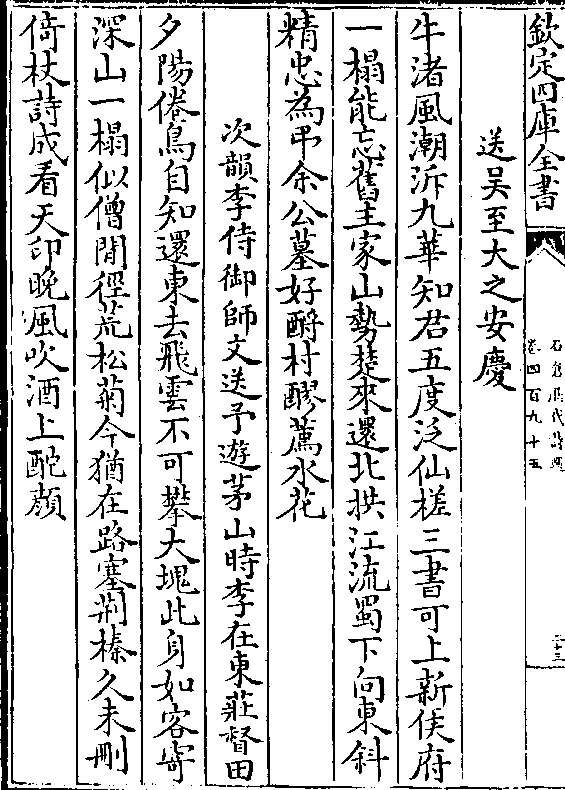 欽定四庫全書
石倉歷代詩選
卷四百九十五
二十三
送吴至大之安慶
牛渚風潮泝九華知君五度泛仙槎三書可上新侯府
一榻能忘舊主家山勢楚來還北拱江流蜀下向東斜
精忠為弔余公墓好酹村醪薦水花
次韻李侍御師文送予遊茅山時李在東莊督田
夕陽倦鳥自知還東去飛雲不可攀大塊此身如客寄
深山一榻似僧閒徑荒松菊今猶在路塞荆榛久未刪
倚杖詩成看天印晚風吹酒上酡顔